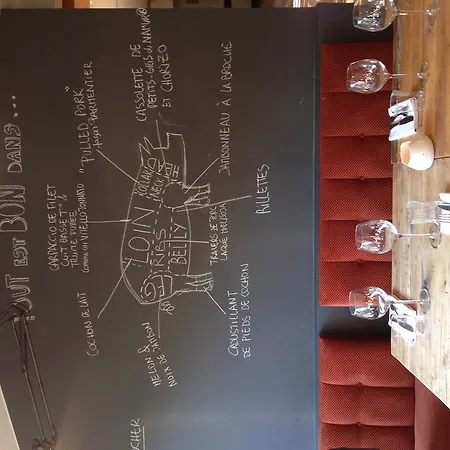 TOUT EST BON DANS...
CARPACCIO DE FILET
CUIT BASSET° &
TRUITE FUMÉE
COMME UN VITELLO TONNATO
"PULLED PORK"
façon PARMENTIER
CASSOLETTE DE
PETITS-GRIS de NAMUR
ET CHORIZO
JAMBONNEAU À LA BROCHE
COCHON DE LAIT
LOIN
COLLAR
NECK
RIBS
BELLY
RILLETTES
TRAVERS DE PORC
LAQUÉ MAISON
MELON &
NOIX DE JAMBON
CROUSTILLANT
DE PIEDS DE COCHON